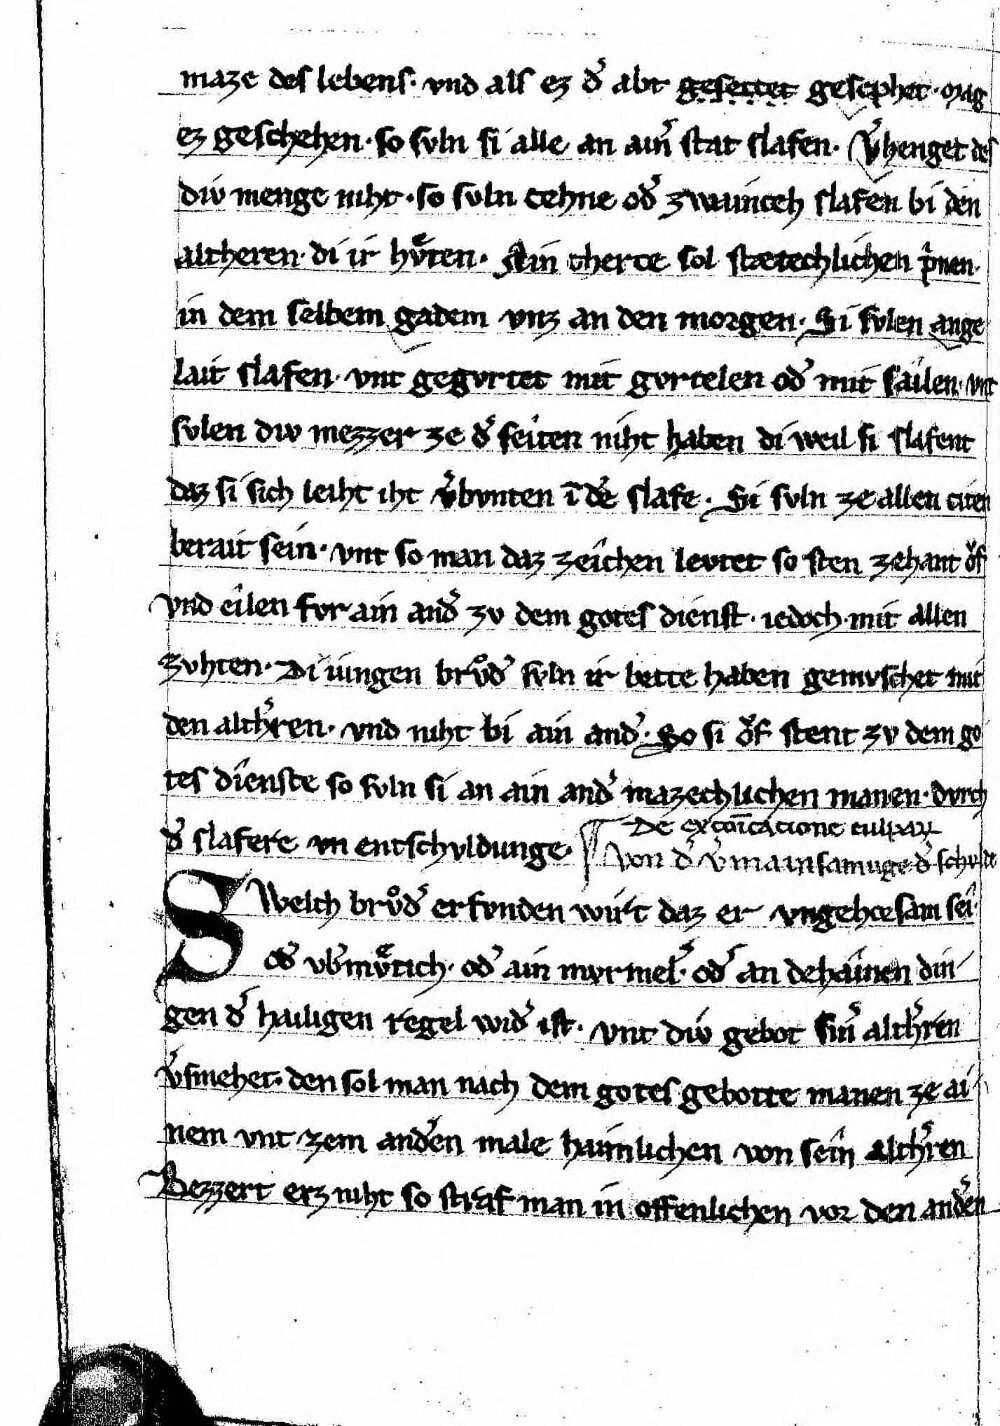 maze des lebens· vnd als ez d͛ abt gesettet gesephet· mag
ez geschehen· so svln si alle an ain͛ stat slafen· v͛henget des
div menge niht· so svln cehne od͛ zwainceh slafen bi den
altheren· di ir hvͤten· Ain cherce sol stætechlichen pͥnen·
in dem selbem gadem vnz an den morgen· Si svlen ange
lait slafen· vnt gegvrtet mit gvrtelen od͛ mit sailen· vnt
svlen div mezzer ze d͛ seiten niht haben di weil si slafent
daz si sich leiht iht v͛bvnten ī de͛ slafe· Si svln ze allen citen
berait sein· vnt so man daz zeichen levtet so sten zehant vͦf
vnd eilen fvr ain and͛ zv dem gotes dienst· iedoch mit allen
zvhten· Di iungen brvͦd͛ svln ir bette haben gemvschet mit
den alth͛ren· vnd niht bi ain and͛· So si vͦf stent zv dem go
tes dienste so svln si an ain and͛ mazechlichen manen· dvrch
d͛ slafere vn entschvldunge·
De excōicatione culpaꝝ
Von d͛ v͛mainsamuge d͛ schulde
Swelch brvͦd͛ erfvnden wirt daz er vngehcesam sei·
od͛ vb͛mvͤtich· od͛ ain mvrmel͛· od͛ an dehainen din
gen d͛ hailigen regel wid͛ ist· vnt div gebot sin͛ alth͛ren
v͛smehet· den sol man nach dem gotes gebotte manen ze ai
nem vnt zem and͛en male haimlichen von sein alth͛ren
Bezzert erz niht so straf man in offenlichen vor den and͛en